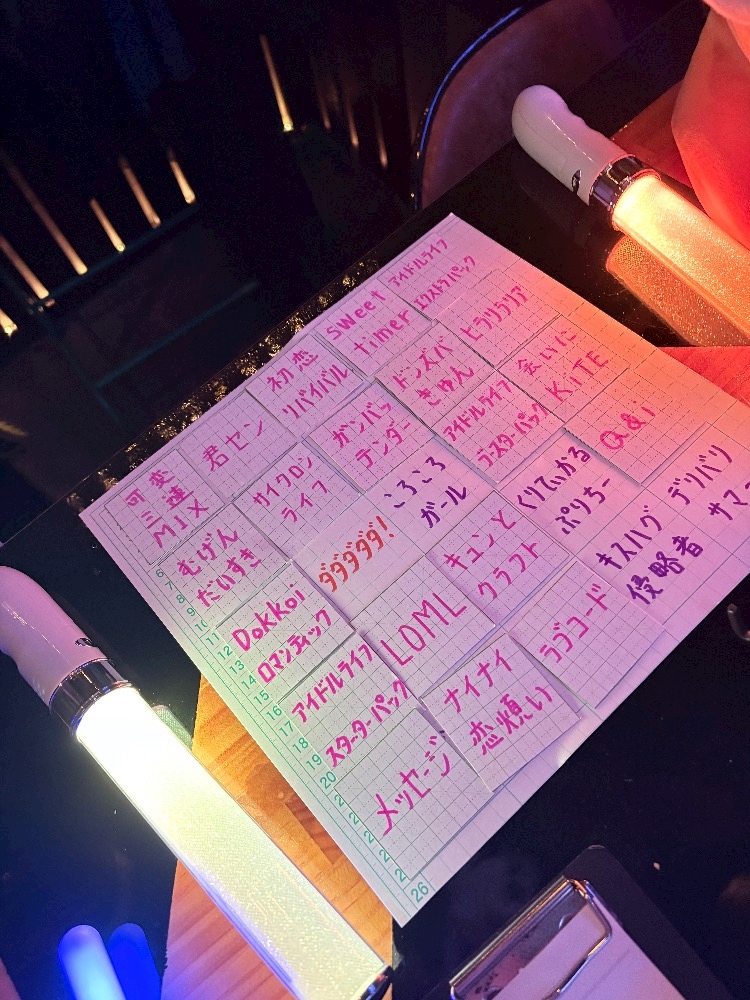 可変
三連
MIX
君セン
初恋
リバイバル
sweet
timer
アイドルライフ
エクストラパック
むげん
だいすき
サイクロン
ライフ
ガンバッ
テンダー
ドンズバ
きゅん
ヒラリラリア
Dokkoi
ロマンティック
ダダダダダ!
ころころ
ガール
アイドルライフ
ブースターパック
会いに
KiTE
アイドルライフ
スターターパック
LOML
キュンと
クラフト
くりてぃかる
ぷりちー
Q&i
メッセージ
ナイナイ
恋煩い
ラブコード
キスハグ
侵略者
デリバリ
サマー
6
7
8
9
10
11
12
13
14
15
16
17
18
19
20
26